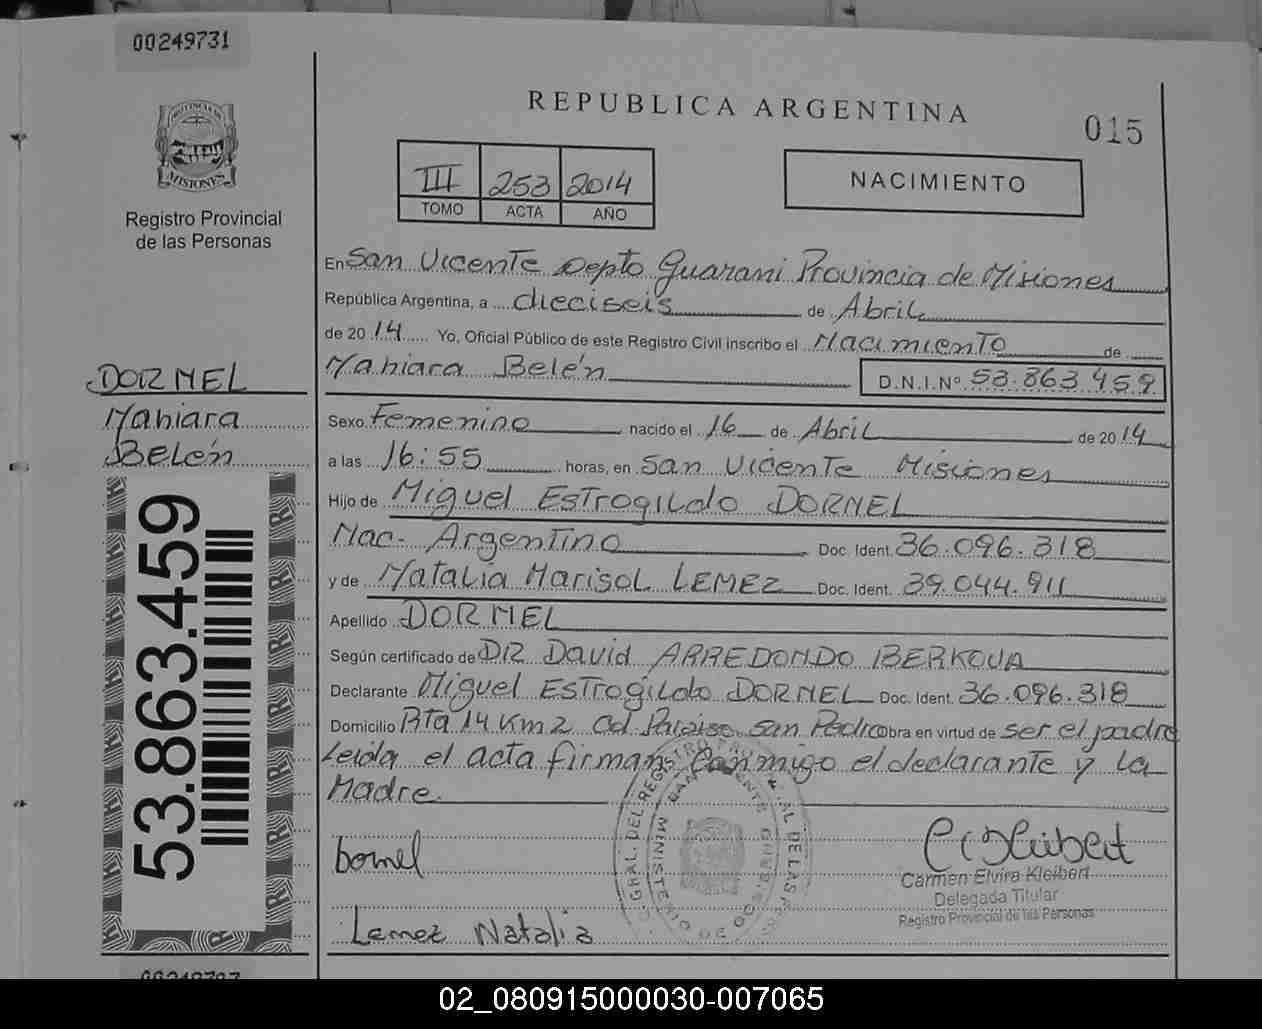 00249731
REPUBLICA ARGENTINA
015
III 253 2014
TOMO ACTA AÑO
NACIMIENTO
MISIONES
Registro Provincial
de las Personas
En San Vicente Depto Guarani Provincia de Misiones
República Argentina, a dieciseis de Abril
de 2014 Yo, Oficial Público de este Registro Civil inscribo el Nacimiento de
Nahiara Belén D.N.I.Nº 53.863.459
DORNEL
Nahiara
Belén
53.863.459
Sexo Femenino nacido el 16 de Abril de 2014
a las 16:55 horas, en San Vicente Misiones
Hijo de Miguel Estrogildo DORNEL
Nac. Argentino Doc. Ident. 36.096.318
y de Natalia Marisol LEMEZ Doc. Ident. 39.044.911
Apellido DORNEL
Según certificado de DR David ARREDONDO BERKOVA
Declarante Miguel Estrogildo DORNEL Doc. Ident. 36.096.318
Domicilio Rta 14 Km 2 Col Paraiso San Pedro Obra en virtud de ser el padre
Leida el acta firman conmigo el declarante y la
Madre.
Dornel
Carmen Elvira Kleibert
Delegada Titular
Registro Provincial de las Personas
Lemez Natalia
02_080915000030-007065